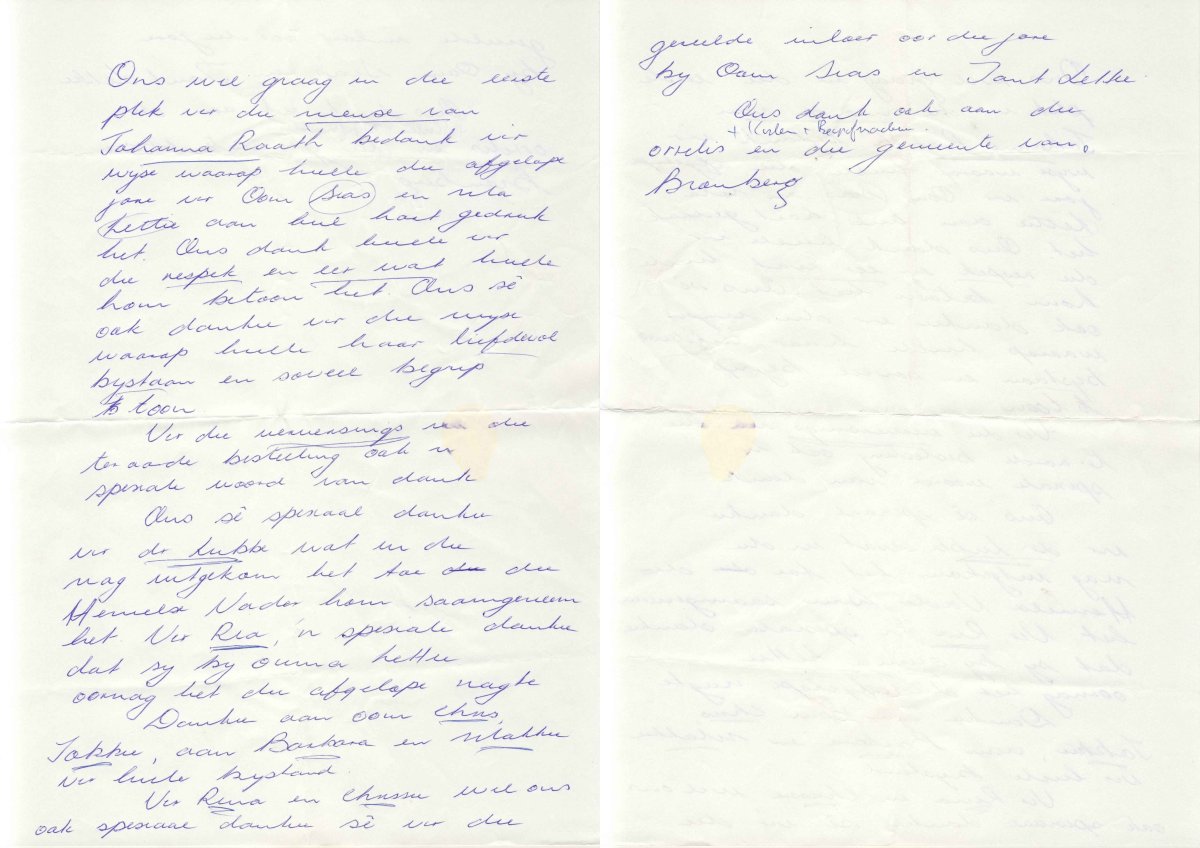 Ons wil graag in die eerste
plek vir die mense van
Johanna Raath bedank vir
wyse waarop hulle die afgelope
jare vir Oom Sias en
Lettie aan hul hart gedruk
het. Ons dank hulle vir
die respek en eer wat hulle
hom betoon het. Ons sê
ook dankie vir die wyse
waarop hulle haar liefdevol
bystaan en soveel begrip
toon
Vir die verversings na die
teraarde bestelling ook 'n
spesiale woord van dank
Ons sê spesiaal dankie
vir dr Lubbe wat in die
nag uitgekom het toe die
Hemelse Vader hom saamgeneem
het. Vir Ria, 'n spesiale dankie
dat sy by ouma Lettie
oornag het die afgelope nagte
Dankie aan oom Chris,
Jakkie, aan Barbara en
vir hulle bystand.
Vir Rina en Chrissie wil ons
ook spesiaal dankie sê vir die
gereelde inloer oor die jare
by Oom Sias en Tant Lettie.
Ons dank ook aan die
+ Koster +
orrelis en die gemeente van
Bronberg